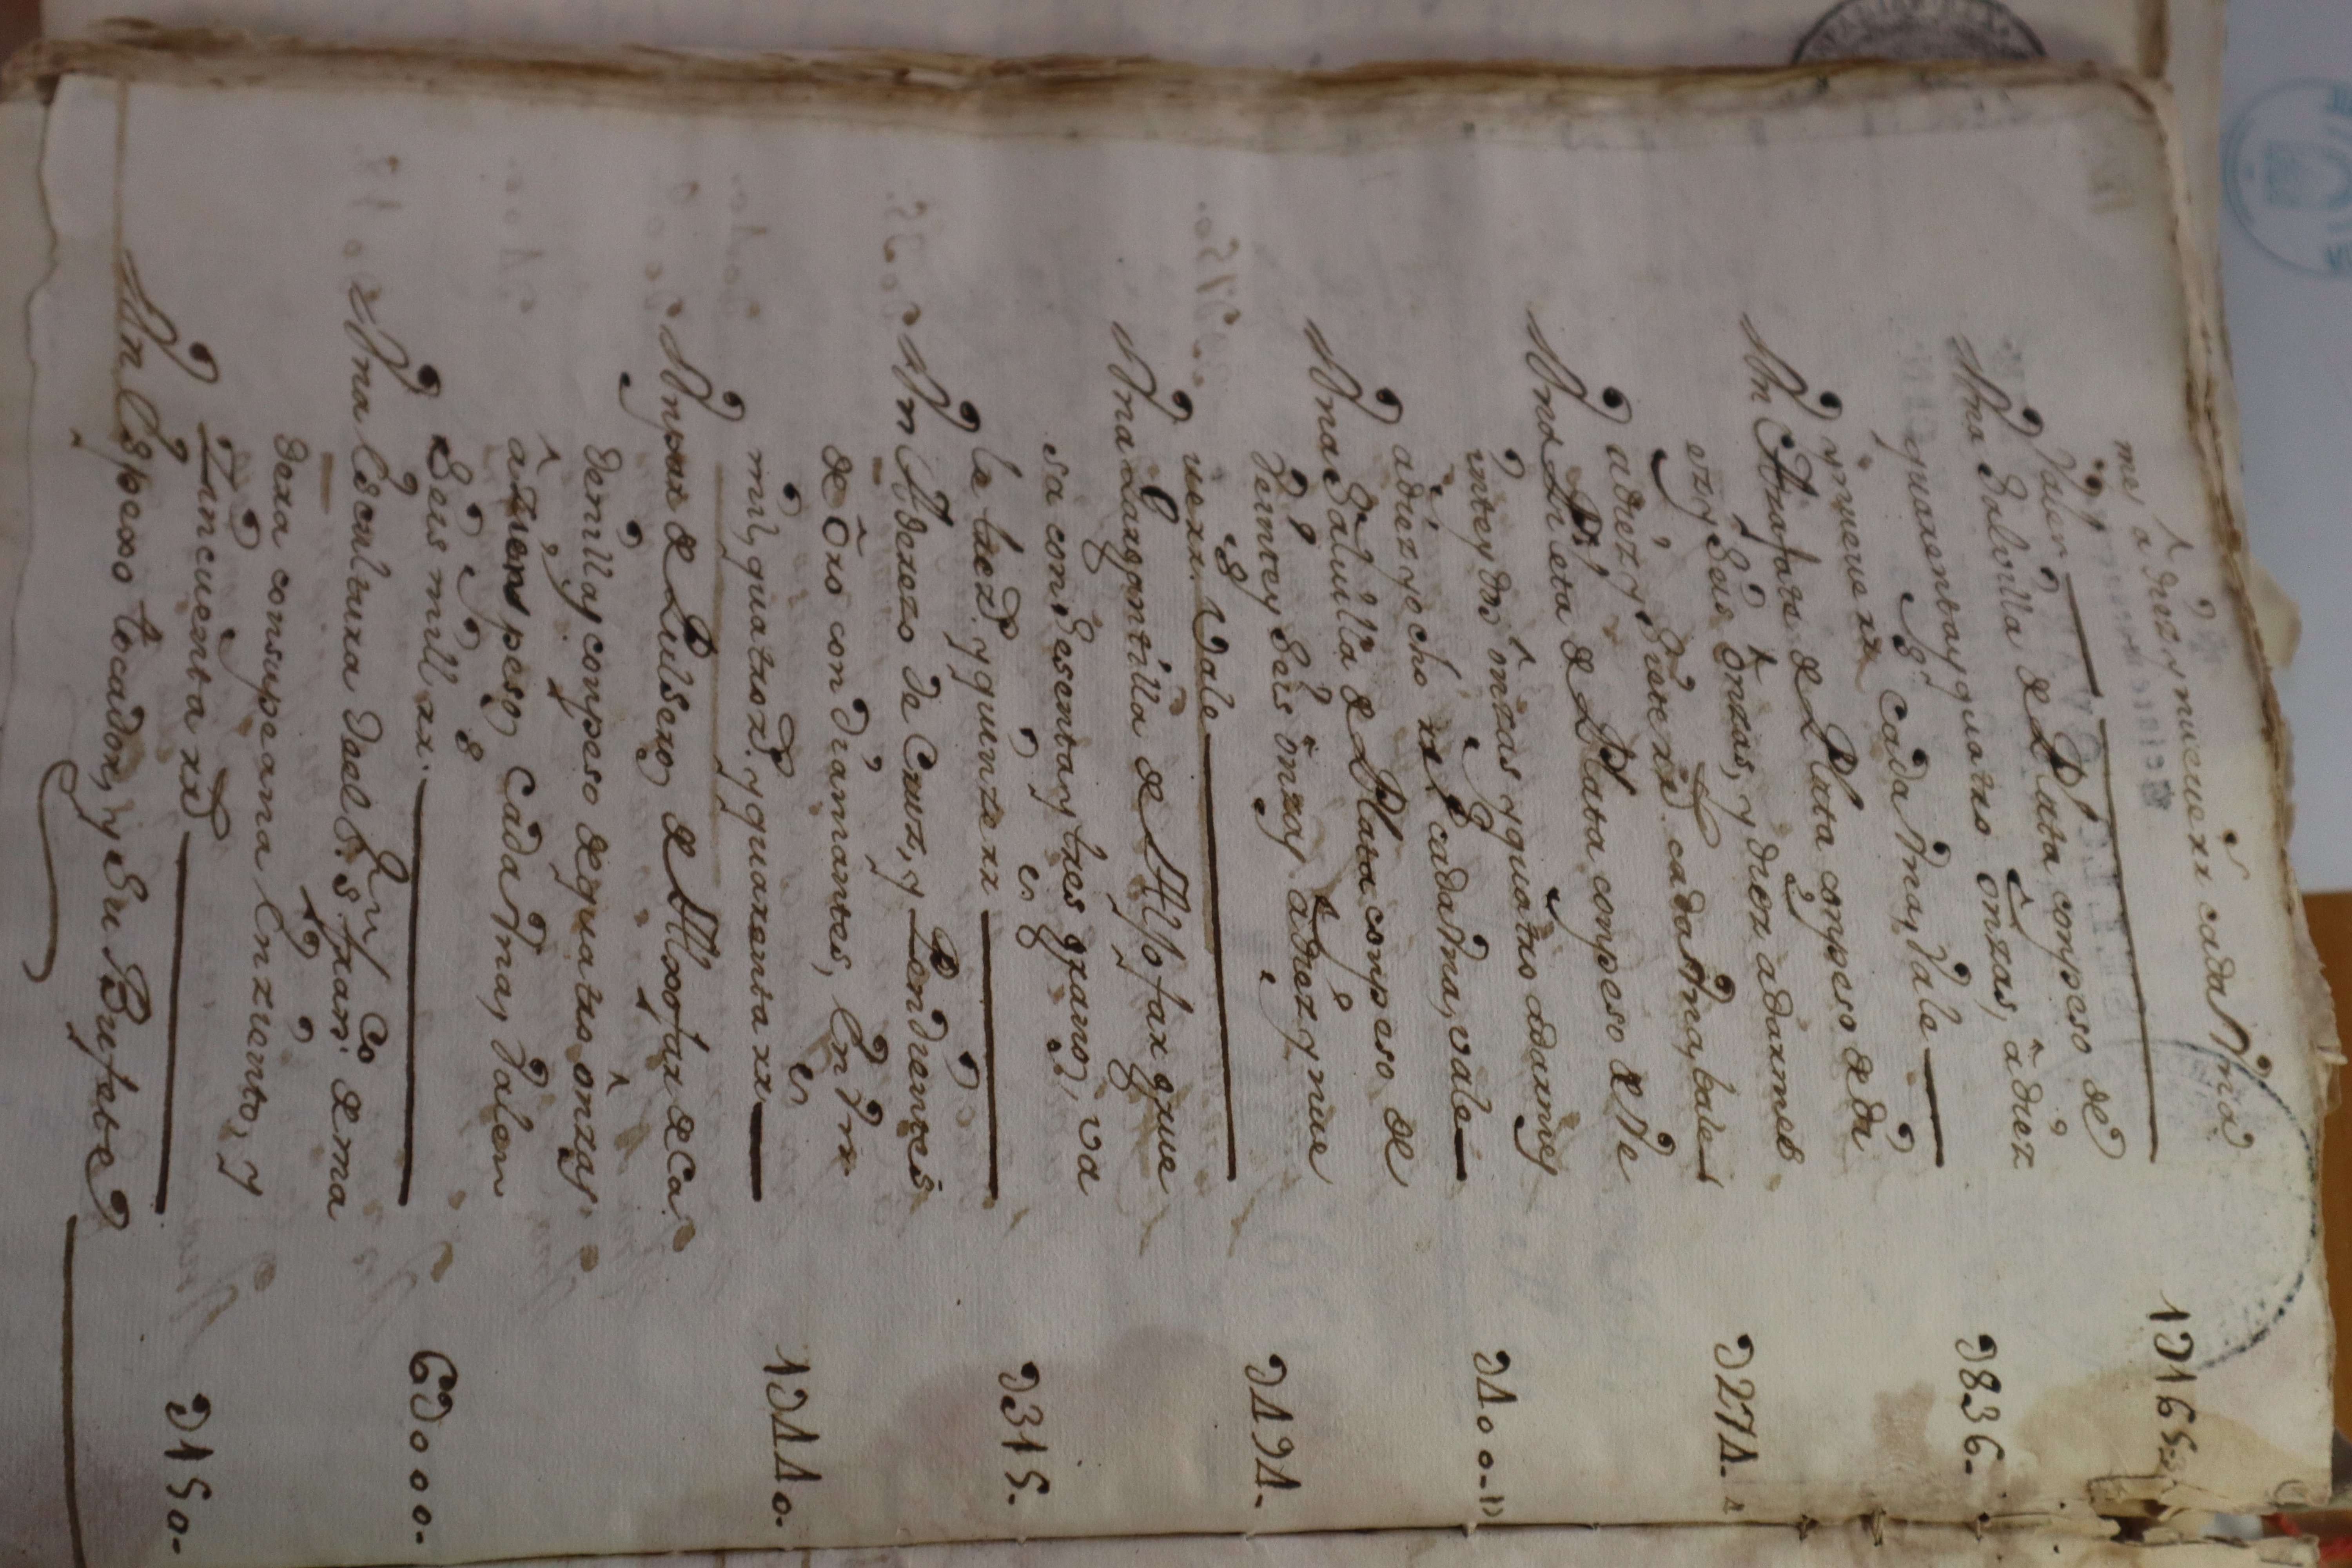 mes a diez y nueve rr.s cada Una
Valen 1D165
Una Salvilla de Plata con peso de
quarenta y quatro onzas, a diez
y nueve rr.s cada Una, Vale D836
Un Azafate de Plata con peso de di
ez y Seis onzas, y diez adarmes
a diez y Siete rr.s cada Una, bale D274
Una Pieza de Plata con peso de Ve
inte y dos onzas y quatro adarmes
a diez y ocho rr.s cada Una, vale D400
Una Salvilla de Plata con peso de
Veinte y Seis onzas a diez y nue
ve rr.s Vale D494
Una Gargantilla de Aljofar grue
sa con Sesenta y tres granos, va
le trez.s y quinze rr.s D315
Un Aderezo de Cruz, y Pendientes
de Oro con diamantes, En Un
mil, quatroz.s y quarenta rr.s 1D440
Un par de Pulseras de Aljofar de Ca
denilla, con peso de quatro onzas,
a zien pesos Cada Una, Valen
Seis mill rr.s 6D000
Una Escultura del S.r S.n Fran.co de ma
dera con su peana En ziento, y
Zincuenta rr.s D150
Un Espexo tocador, y Su Bufete